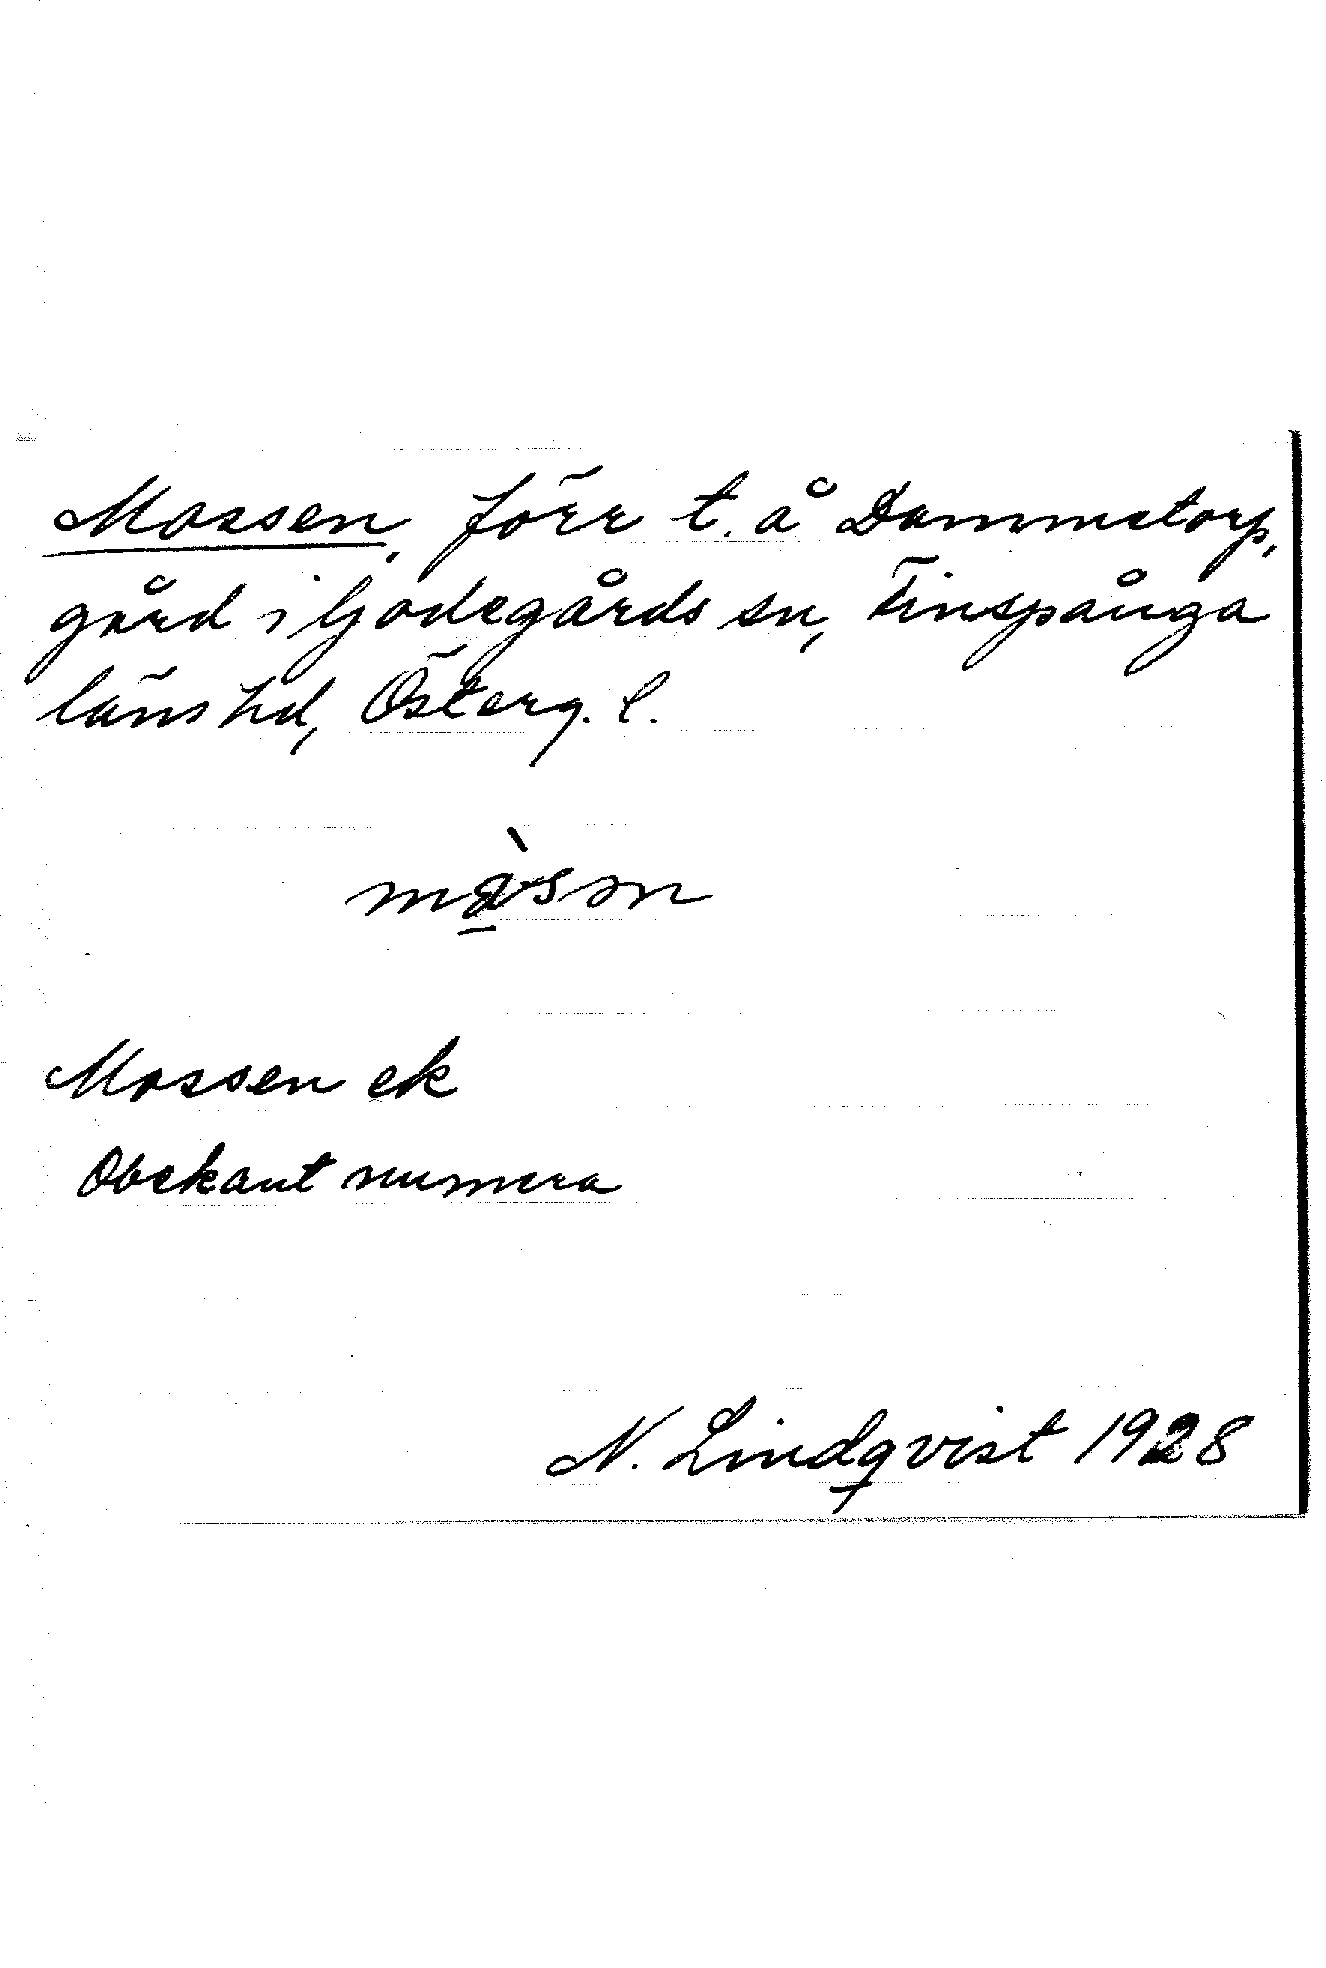 Mossen, förr t. å Dammetorp,
gård i Godegårds sn, Finspånga
läns hd, Österg. l.
Mossen ek
Obekant numera
N. Lindqvist 1928